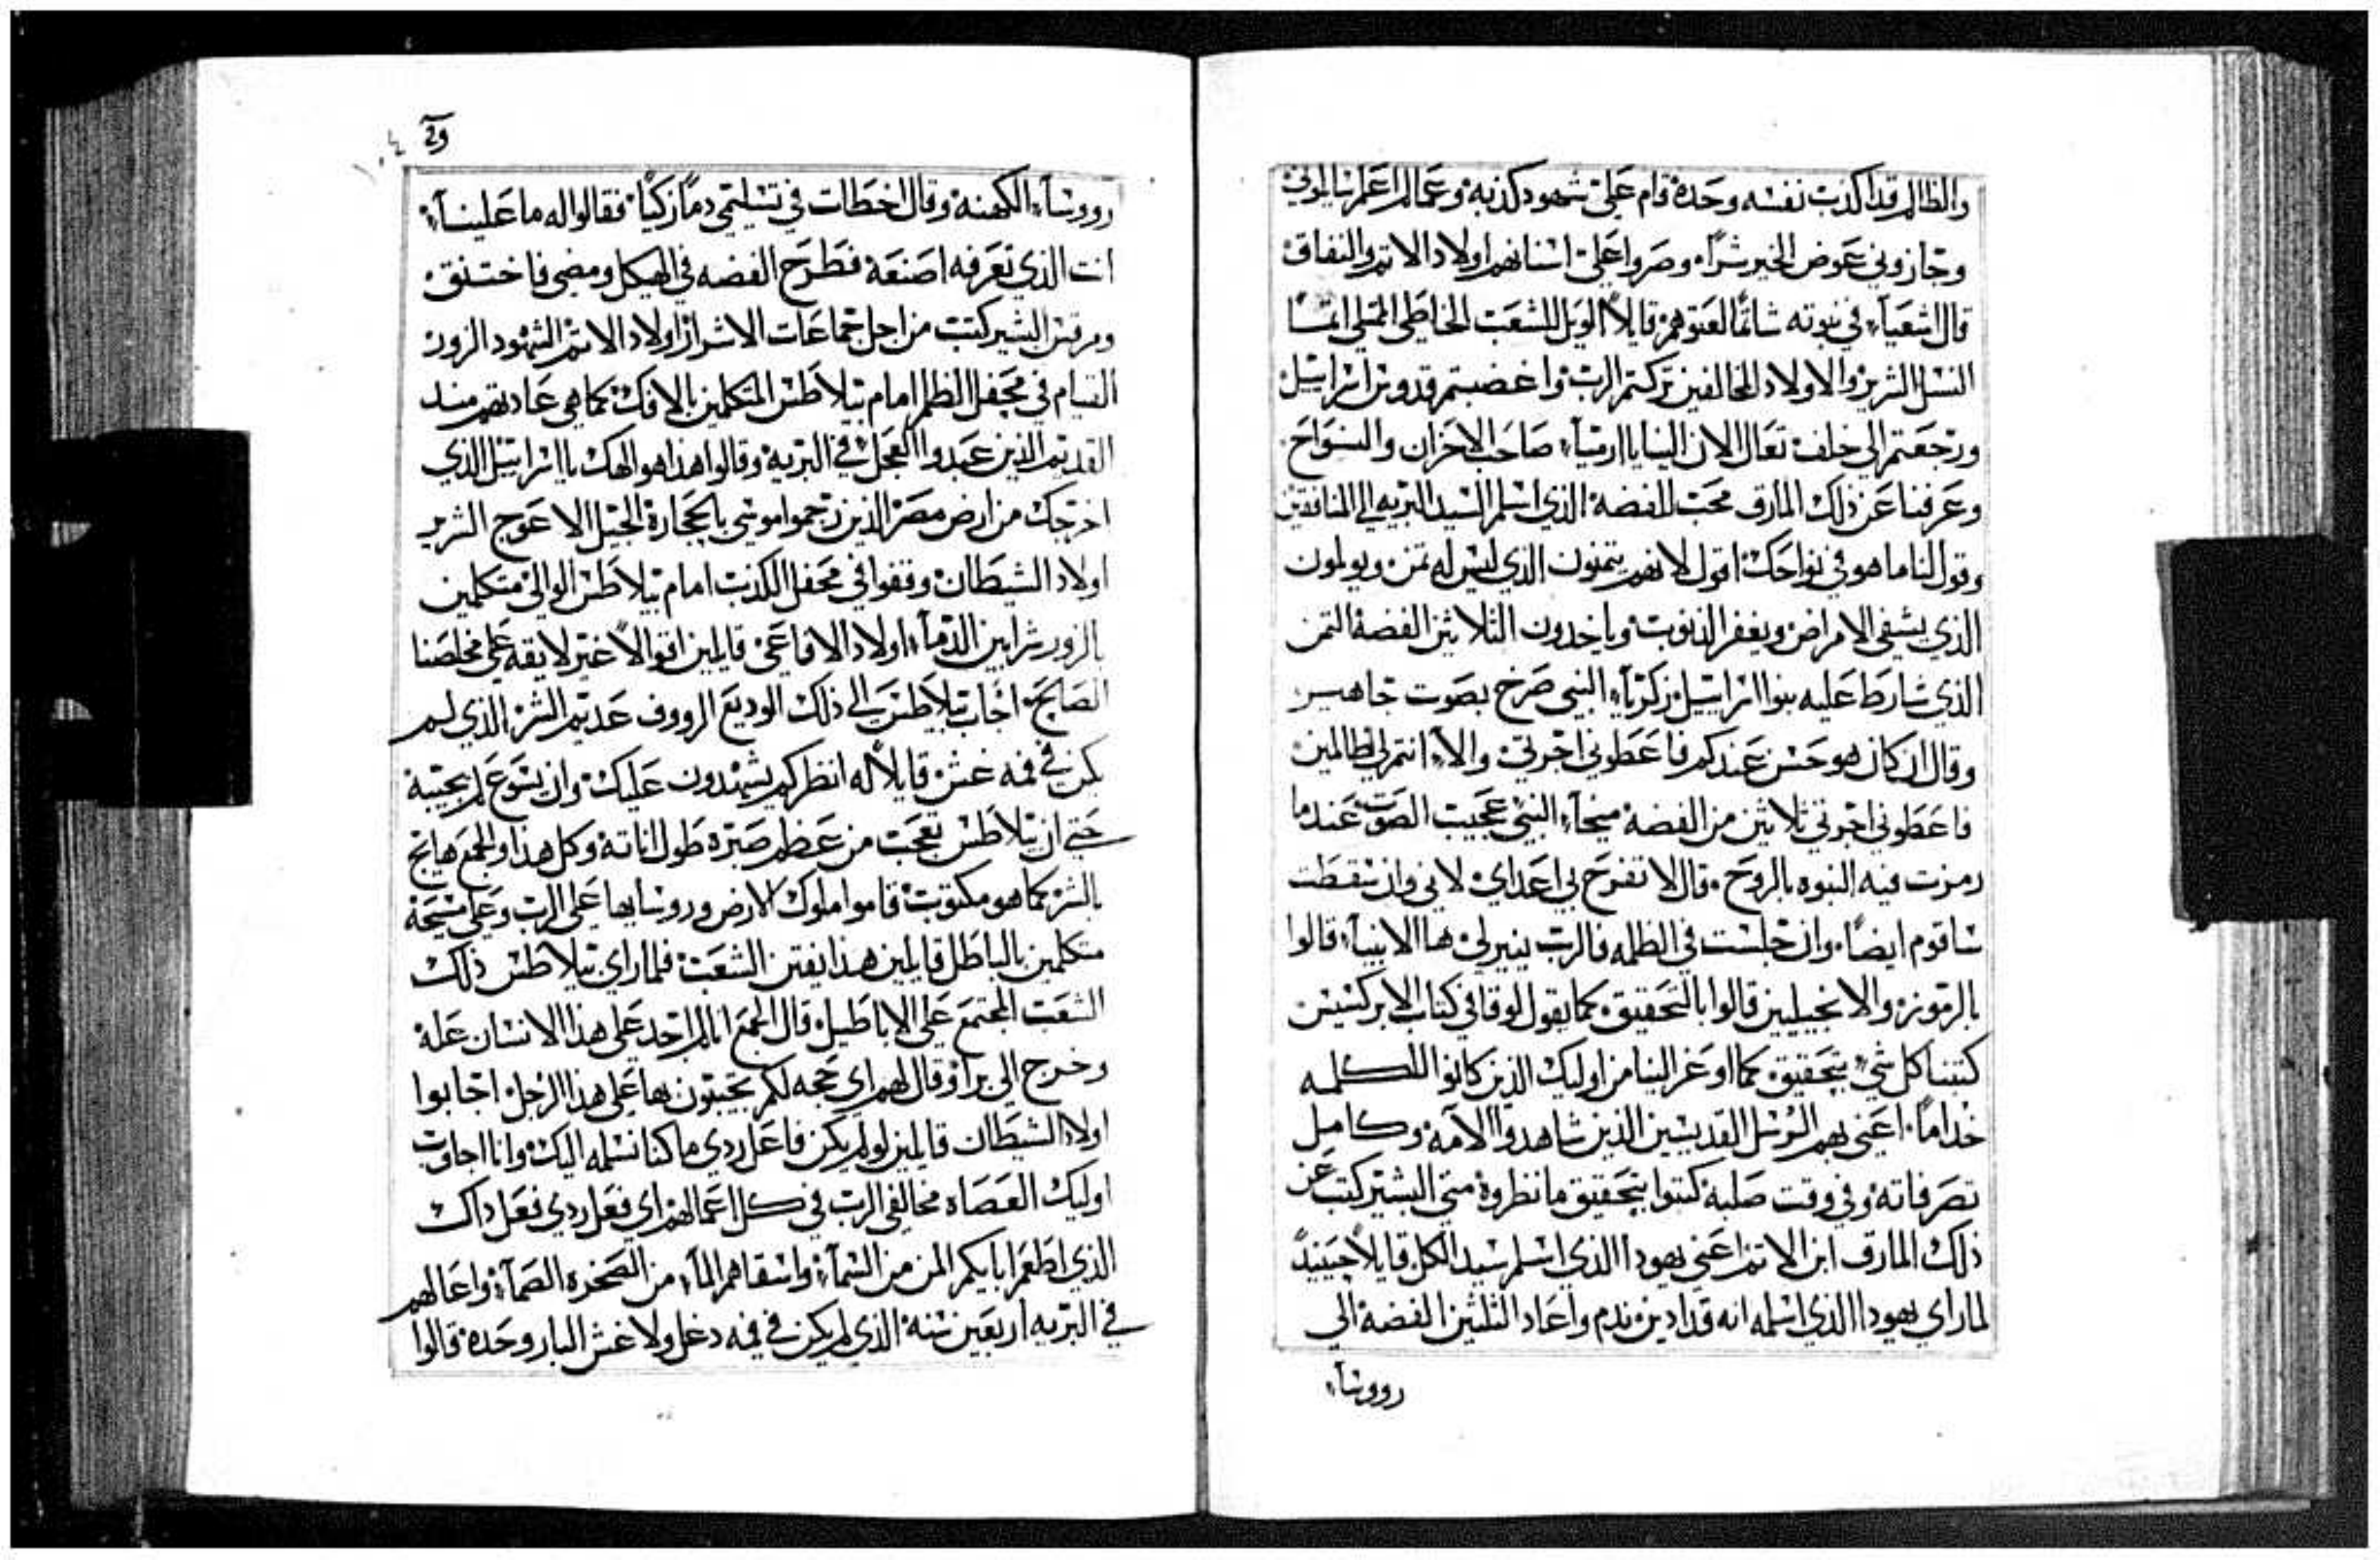 والظالم قد اكذب نفسه وحده قام على شهود كذبه وعما لم اعلم سايلوني
وجازوني عوض الخير شرًا وصروا على اسنانهم اولاد الاثم والنفاق
قال اشعياء في نبوته شاتمًا لعتوهم قايلاً الويل للشعب الخاطي الممتلي اثمًا
النسل الشرير والاولاد المخالفين تركتم الرب واغضبتم قدوس اسراييل
ورجعتم الى خلف تعال الان الينا يا ارميآء صاحب الاحزان والنواح
وعرفنا عن ذلك المارق محب الفضة الذي اسلم السيد البريه الي المنافقين
وقول لنا ما هو في نواحك اقول لانهم يتمنون الذي ليس له تمن ويولمون
الذي يشفي الامراض ويغفر الذنوب وياخدون الثلاثين الفضة التمن
الذي شارط عليه بنوا اسراييل زكريآء النبي صرخ بصوت جاهير
وقال ان كان هو حسن عندكم فاعطوني اجرتي والا انتم لي ظالمين
فاعطوني اجرتي ثلاثين من الفضة ميخآء النبي عجيب الصوت عندما
رمزت فيه النبوه بالروح قال لا تفرح بي اعداي لاني وان سقطت
ساقوم ايضًا وان جلست في الظلمه فالرب ينير لي ها الانبيآء قالوا
بالرموز والانجيليين قالوا بالتحقيق كما يقول لوقا في كتاب الابركسيس
كتبنا كل شي بتحقيق كما اوعز الينا من اوليك الذين كانوا للكلمه
خدامًا اعني بهم الرسل القديسين الذين شاهدوا الامه وكامل
تصرفاته وفي وقت صلبه كتبوا بتحقيق ما نظروه متى البشير كتب عن
ذلك المارق ابن الاثم اعني يهودا الذي اسلم سيد الكل قايلاً حينيدً
لما راي يهودا الذي اسلمه انه قد ادين ندم واعاد الثلثين الفضة الي
رووسآء
رووسآء الكهنه وقال اخطات في تسليمي دمًا زكيًا فقالوا له ما علينآء
انت الذي تعرفه اصنعه فطرح الفضه في الهيكل ومضى فاختنق
ومرقس البشير كتب من اجل جماعات الاشرار اولاد الاثم الشهود الزور
القيام في محفل الظلم امام بيلاطس المتكلمين بالافك كما هي عادتهم منذ
القديم الذين عبدوا العجل في البريه وقالوا هذا هو الهك يا اسراييل الذي
اخرجك من ارض مصر الذين رجموا موسى بالحجارة الجيل الاعوج الشرير
اولاد الشيطان وقفوا في محفل الكذب امام بيلاطس الوالي متكلمين
بالزور شرابين الدمآء اولاد الافاعى قايلين اقوالاً غير لايقه على مخلصنا
الصالح اجاب بيلاطس الى ذلك الوديع الرووف عديم الشر الذي لم
يكن في فمه غش قايلاً له انظر كم يشهدون عليك وان يسوع لم يجيبه
حتى ان بيلاطس تعجب من عظم صبره طول اناته وكل هذا والجمع هايج
بالشر كما هو مكتوب قاموا ملوك الارض وروسايها على الرب وعلى مسيحه
متكلمين بالباطل قايلين هدا يفتن الشعب فلما راي بيلاطس ذلك
الشعب المجتمع على الاباطيل قال للجمع انا لم اجد على هذا الانسان عله
وخرج الي برا وقال لهم اي حجه لكم تجيبون بها على هذا الرجل اجابوا
اولاد الشيطان قايلين لو لم يكن فاعل ردي ما كنا نسلمه اليك وانا اجاوب
اوليك العصاه مخالفي الرب في كل اعمالهم اي فعل ردي فعل داك
الذي اطعم ابايكم المن من السمآء واسقاهم المآء من الصخره الصمآء واعالهم
في البريه اربعين سنه الذي لم يكن في فيه دغل ولا غش البار وحده قالوا